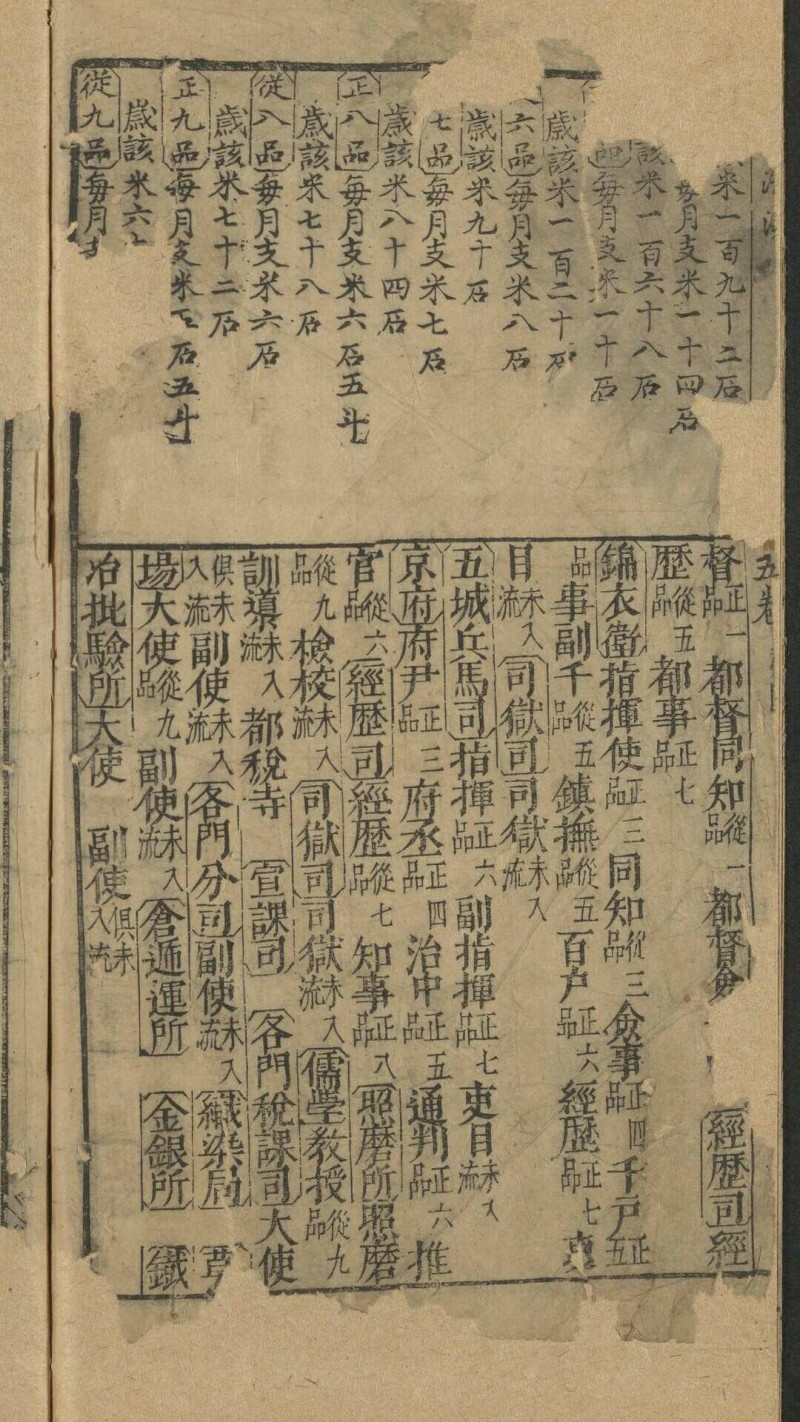 米一百九十二石
每月支米一十四石
該米一百六十八石
每月支米一十石
歲該米一百二十石
六品每月支米八石
歲該米九十石
七品每月支米七石
歲該米八十四石
正八品每月支米六石五斗
歲該米七十八石
從八品每月支米六石
歲該米七十二石
正九品每月支米石五斗
歲該米六
從九品每月
五卷
督正一品都督同知從一品都督僉經歷司經
歷從五品都事正七品
錦衣衛指揮使正三品同知從三品僉事正四品千戶正五
品事副千從五品鎮撫從五品百戶正六品經歷正七品
目未入流司獄司司獄未入流
五城兵馬司指揮正六品副指揮正七品吏目未入流
京府府尹正三品府丞正四品治中正五品通判正六品推
官從六品經歷司經歷從七品知事正八品照磨所照磨
從九品檢校未入流司獄司司獄未入流儒學教授從九品
訓導未入流都稅寺宣課司各門稅課司大使
俱未入流副使未入流各門分司副使未入流織染局
場大使從九品副使未入流倉遞運所金銀所鐵
冶批驗所大使副使俱未入流